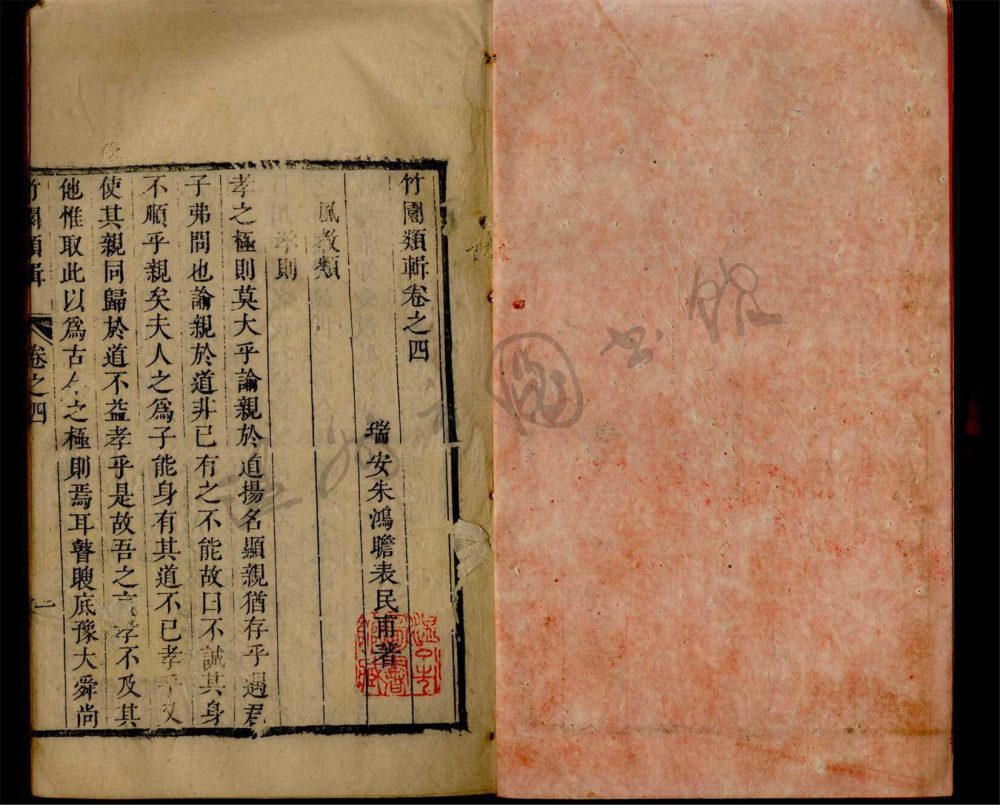 竹園類輯卷之四
瑞安朱鴻瞻表民甫著
風教類
孝則
孝之極則莫大乎諭親於道揚名顯親猶存乎遇君
子弗問也諭親於道非已有之不能故曰不誠其身
不順乎親矣夫人之為子能身有其道不已孝乎又
使其親同歸於道不益孝乎是故吾之言孝不及其
他惟取此以為古今之極則焉耳瞽瞍底豫大舜尚
竹園類輯 卷之四 一
圖書館